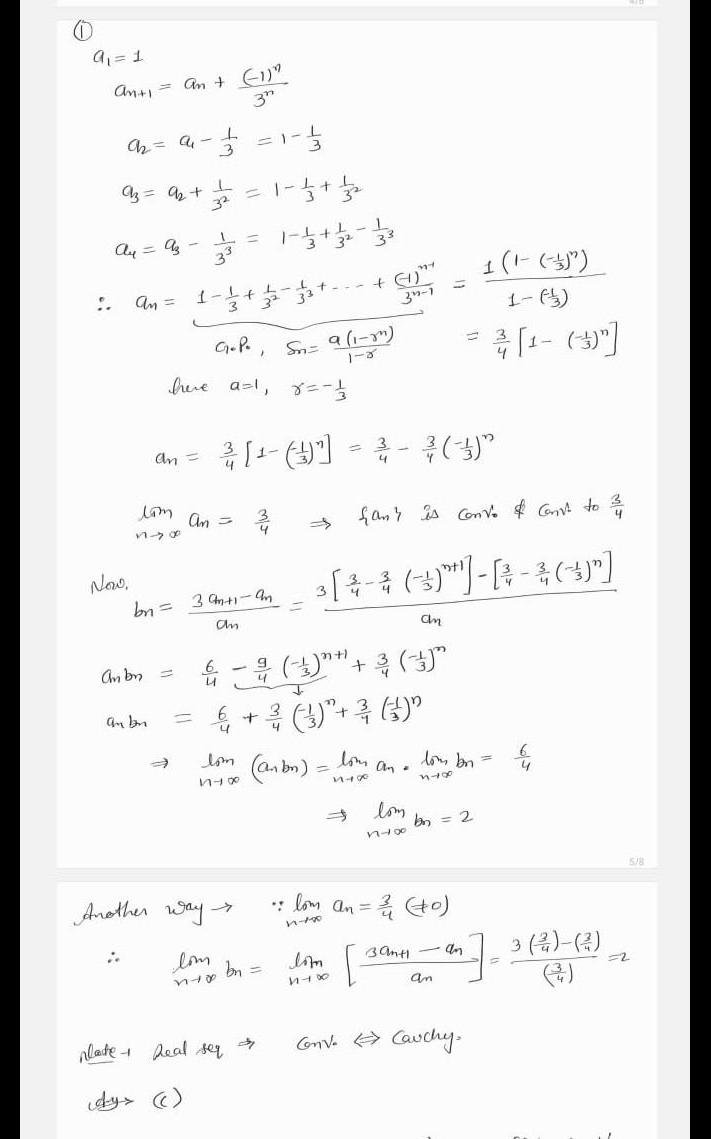 ①
a₁ = 1
aₙ₊₁ = aₙ + (-1)ⁿ/3ⁿ
a₂ = a₁ - 1/3 = 1 - 1/3
a₃ = a₂ + 1/3² = 1 - 1/3 + 1/3²
a₄ = a₃ - 1/3³ = 1 - 1/3 + 1/3² - 1/3³
∴ aₙ = 1 - 1/3 + 1/3² - 1/3³ + --- + (-1)ⁿ⁻¹/3ⁿ⁻¹ = 1(1 - (-1/3)ⁿ)/(1 - (-1/3))
G.P., Sₙ = a(1-rⁿ)/(1-r) = 3/4 [1 - (-1/3)ⁿ]
here a=1, r = -1/3
aₙ = 3/4 [1 - (-1/3)ⁿ] = 3/4 - 3/4 (-1/3)ⁿ
lim n→∞ aₙ = 3/4 ⇒ {aₙ} is conv. & conv. to 3/4
Now,
bₙ = (3aₙ₊₁ - aₙ)/aₙ = (3[3/4 - 3/4 (-1/3)ⁿ⁺¹] - [3/4 - 3/4 (-1/3)ⁿ])/aₙ
aₙbₙ = 6/4 - 9/4 (-1/3)ⁿ⁺¹ + 3/4 (-1/3)ⁿ
aₙbₙ = 6/4 + 3/4 (-1/3)ⁿ + 3/4 (-1/3)ⁿ
⇒ lim n→∞ (aₙbₙ) = lim n→∞ aₙ . lim n→∞ bₙ = 6/4
⇒ lim n→∞ bₙ = 2
5/8
Another way → ∵ lim n→∞ aₙ = 3/4 (≠0)
∴ lim n→∞ bₙ = lim n→∞ [(3aₙ₊₁ - aₙ)/aₙ] = (3(3/4) - (3/4))/(3/4) = 2
Note → Real seq ⇒ Conv. ⇔ Cauchy.
(C)